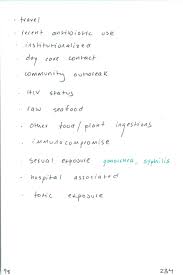 - travel
- recent antibiotic use
- institutionalized
day care contact
community outbreak
- HIV status
- raw seafood
- other food/plant ingestions
- immunocompromise
- sexual exposure gonorrhea, syphilis
- hospital associated
- toxic exposure
98
234